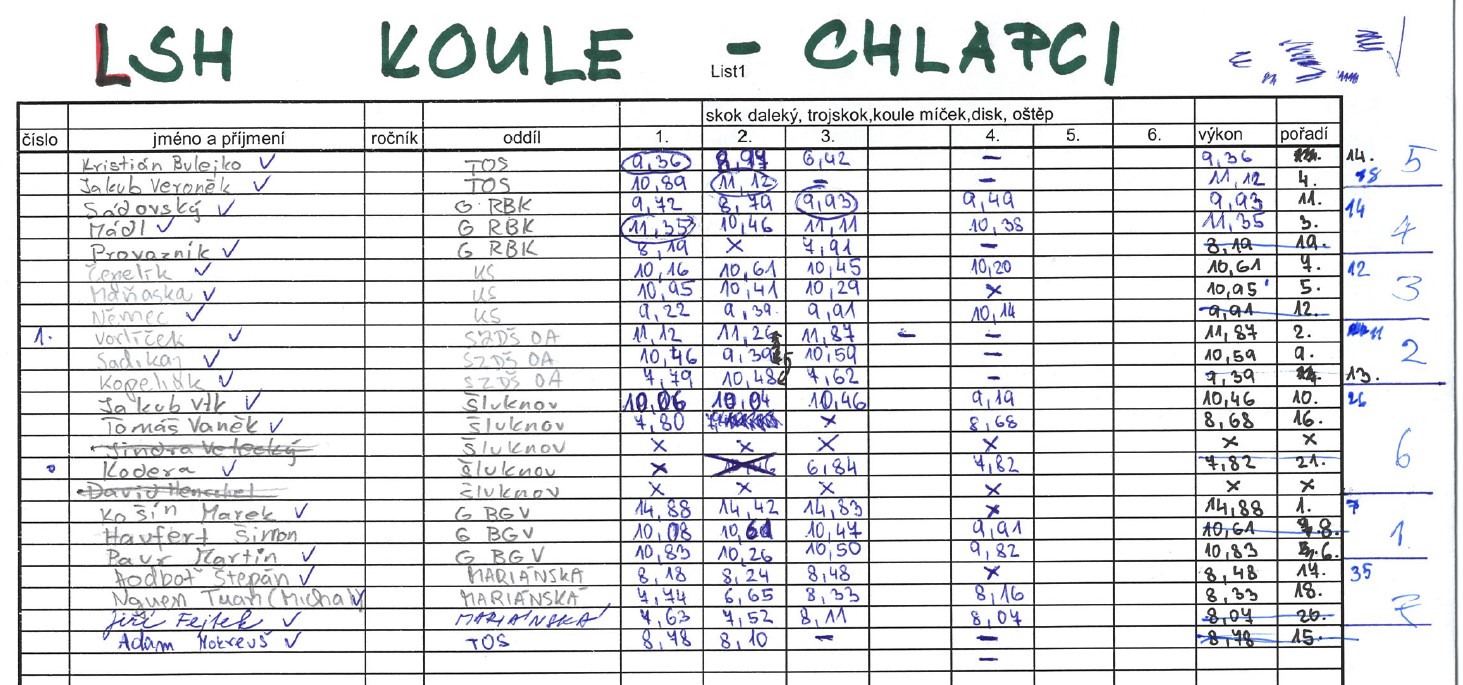 LSH KOULE - CHLAPCI
List1
skok daleký, trojskok,koule míček,disk, oštěp
číslo jméno a příjmení ročník oddíl 1. 2. 3. 4. 5. 6. výkon pořadí
Kristián Bulejko ✓ TOS 9,36 6,42 – 9,36 14. 5
Jakub Veroněk ✓ TOS 10,89 11,12 – – 11,12 4. 18
Sádovský ✓ G RBK 9,72 8,79 9,93 9,49 9,93 11. 14
Mádl ✓ G RBK 11,35 10,46 11,11 10,38 11,35 3. 4
Provazník ✓ G RBK 8,19 x 7,91 – 8,19 19.
Čepelík ✓ KS 10,16 10,61 10,45 10,20 10,61 7. 12
Maňaska ✓ KS 10,95 10,41 10,29 x 10,95 5. 3
Němec ✓ KS 9,22 9,39 9,91 10,14 9,91 12.
1. Vorlíček ✓ SZDŠ OA 11,12 11,26 11,87 – – 11,87 2. 11
Sadikaj ✓ SZDŠ OA 10,46 9,39 10,59 – 10,59 9. 2
Kopelink ✓ SZDŠ OA 7,79 10,48 7,62 – 9,39 13.
Jakub Vlk ✓ Šluknov 10,06 10,04 10,46 9,19 10,46 10. 26
Tomáš Vaněk ✓ Šluknov 7,80 x 8,68 8,68 16.
Jindra Velecký Šluknov x x x x x x
Kodera ✓ Šluknov x 6,84 7,82 7,82 21. 6
David Henschel Šluknov x x x x x x
Košín Marek ✓ G BGV 14,88 14,42 14,83 x 14,88 1. 7
Haufert Šimon G BGV 10,08 10,61 10,47 9,91 10,61 8. 1.
Paur Martin ✓ G BGV 10,83 10,26 10,50 9,82 10,83 6.
Hodboť Štěpán ✓ MARIÁNSKÁ 8,18 8,24 8,48 x 8,48 17. 35
Nguen Tuan (Michal) ✓ MARIÁNSKÁ 7,74 6,65 8,33 8,16 8,33 18.
Jiří Fejtek ✓ MARIÁNSKÁ 7,63 7,52 8,11 8,07 8,07 20. 7
Adam Mokreuš ✓ TOS 8,78 8,10 – – 8,78 15.
–